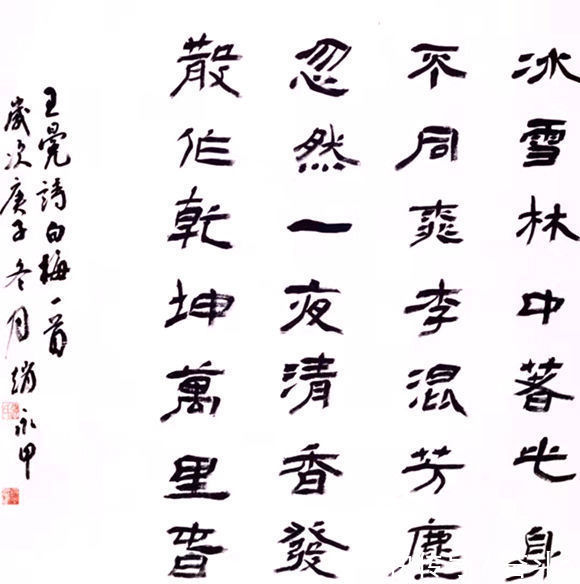 冰雪林中著此身
不同桃李混芳塵
忽然一夜清香發
散作乾坤萬里旾
王冕詩白梅一首
歲次庚子冬月趙永甲